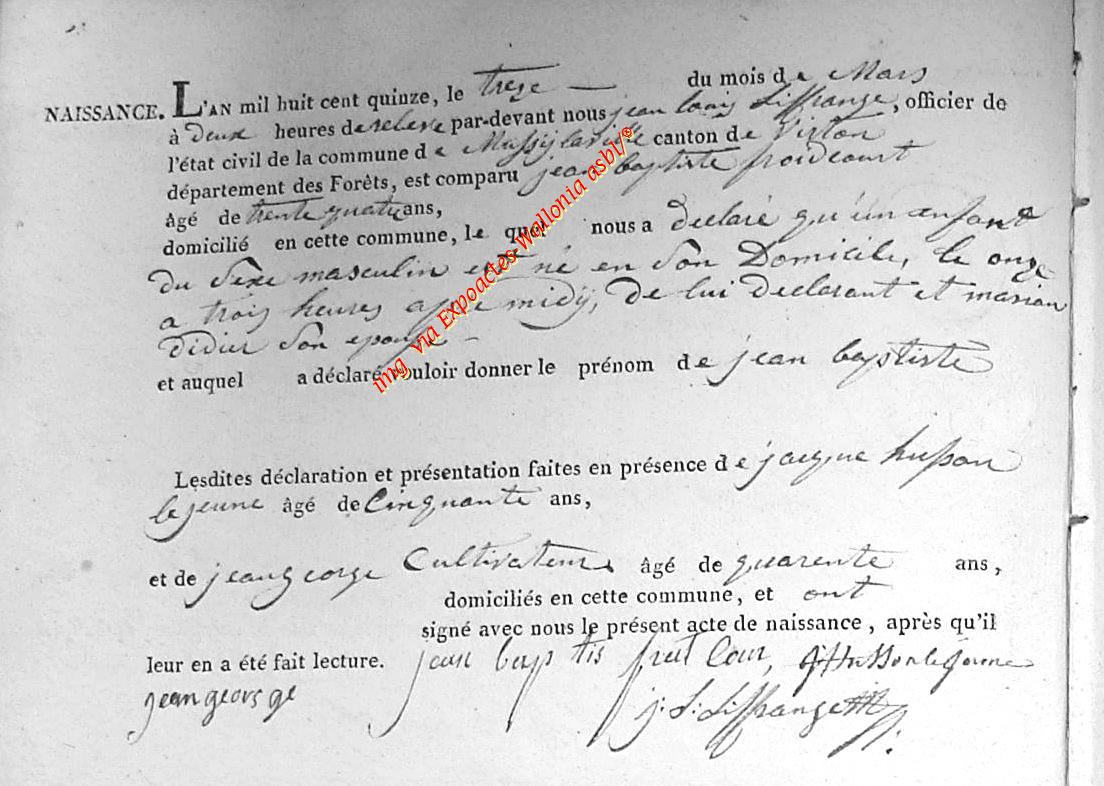 NAISSANCE. L'AN mil huit cent quinze, le treze — du mois de Mars
à deux heures de relevé par-devant nous jean louis Liffrange, officier de
l'état civil de la commune de Mussy la ville canton de Virton
département des Forêts, est comparu jean baptiste froidcourt
âgé de trente quatre ans,
domicilié en cette commune, le quel nous a declaré qu'un enfant
du Sexe masculin est né en Son Domicile, le onze
a trois heures apre midy, De lui Declarant et marian
Didier Son epouse -
et auquel a déclaré vouloir donner le prénom de jean baptiste
Lesdites déclaration et présentation faites en présence de jacque husson
le jeune âgé de Cinquante ans,
et de jean george Cultivateurs âgé de quarente ans,
domiciliés en cette commune, et ont
signé avec nous le présent acte de naissance, après qu'il
leur en a été fait lecture. jean bap tis
jean george j. L. Liffrange
img via Expoactes Wallonia asbl/©